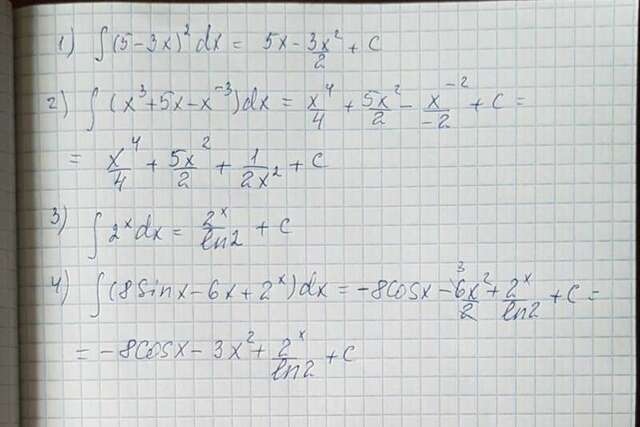 1) ∫(5-3x)² dx = 5x - 3x²/2 + C
2) ∫(x³+5x-x⁻³)dx = x⁴/4 + 5x²/2 - x⁻²/-2 + C =
= x⁴/4 + 5x²/2 + 1/2x² + C
3) ∫2ˣdx = 2ˣ/ln2 + C
4) ∫(8sinx-6x+2ˣ)dx = -8cosx - 6x²/2 3 + 2ˣ/ln2 + C =
= -8cosx - 3x² + 2ˣ/ln2 + C